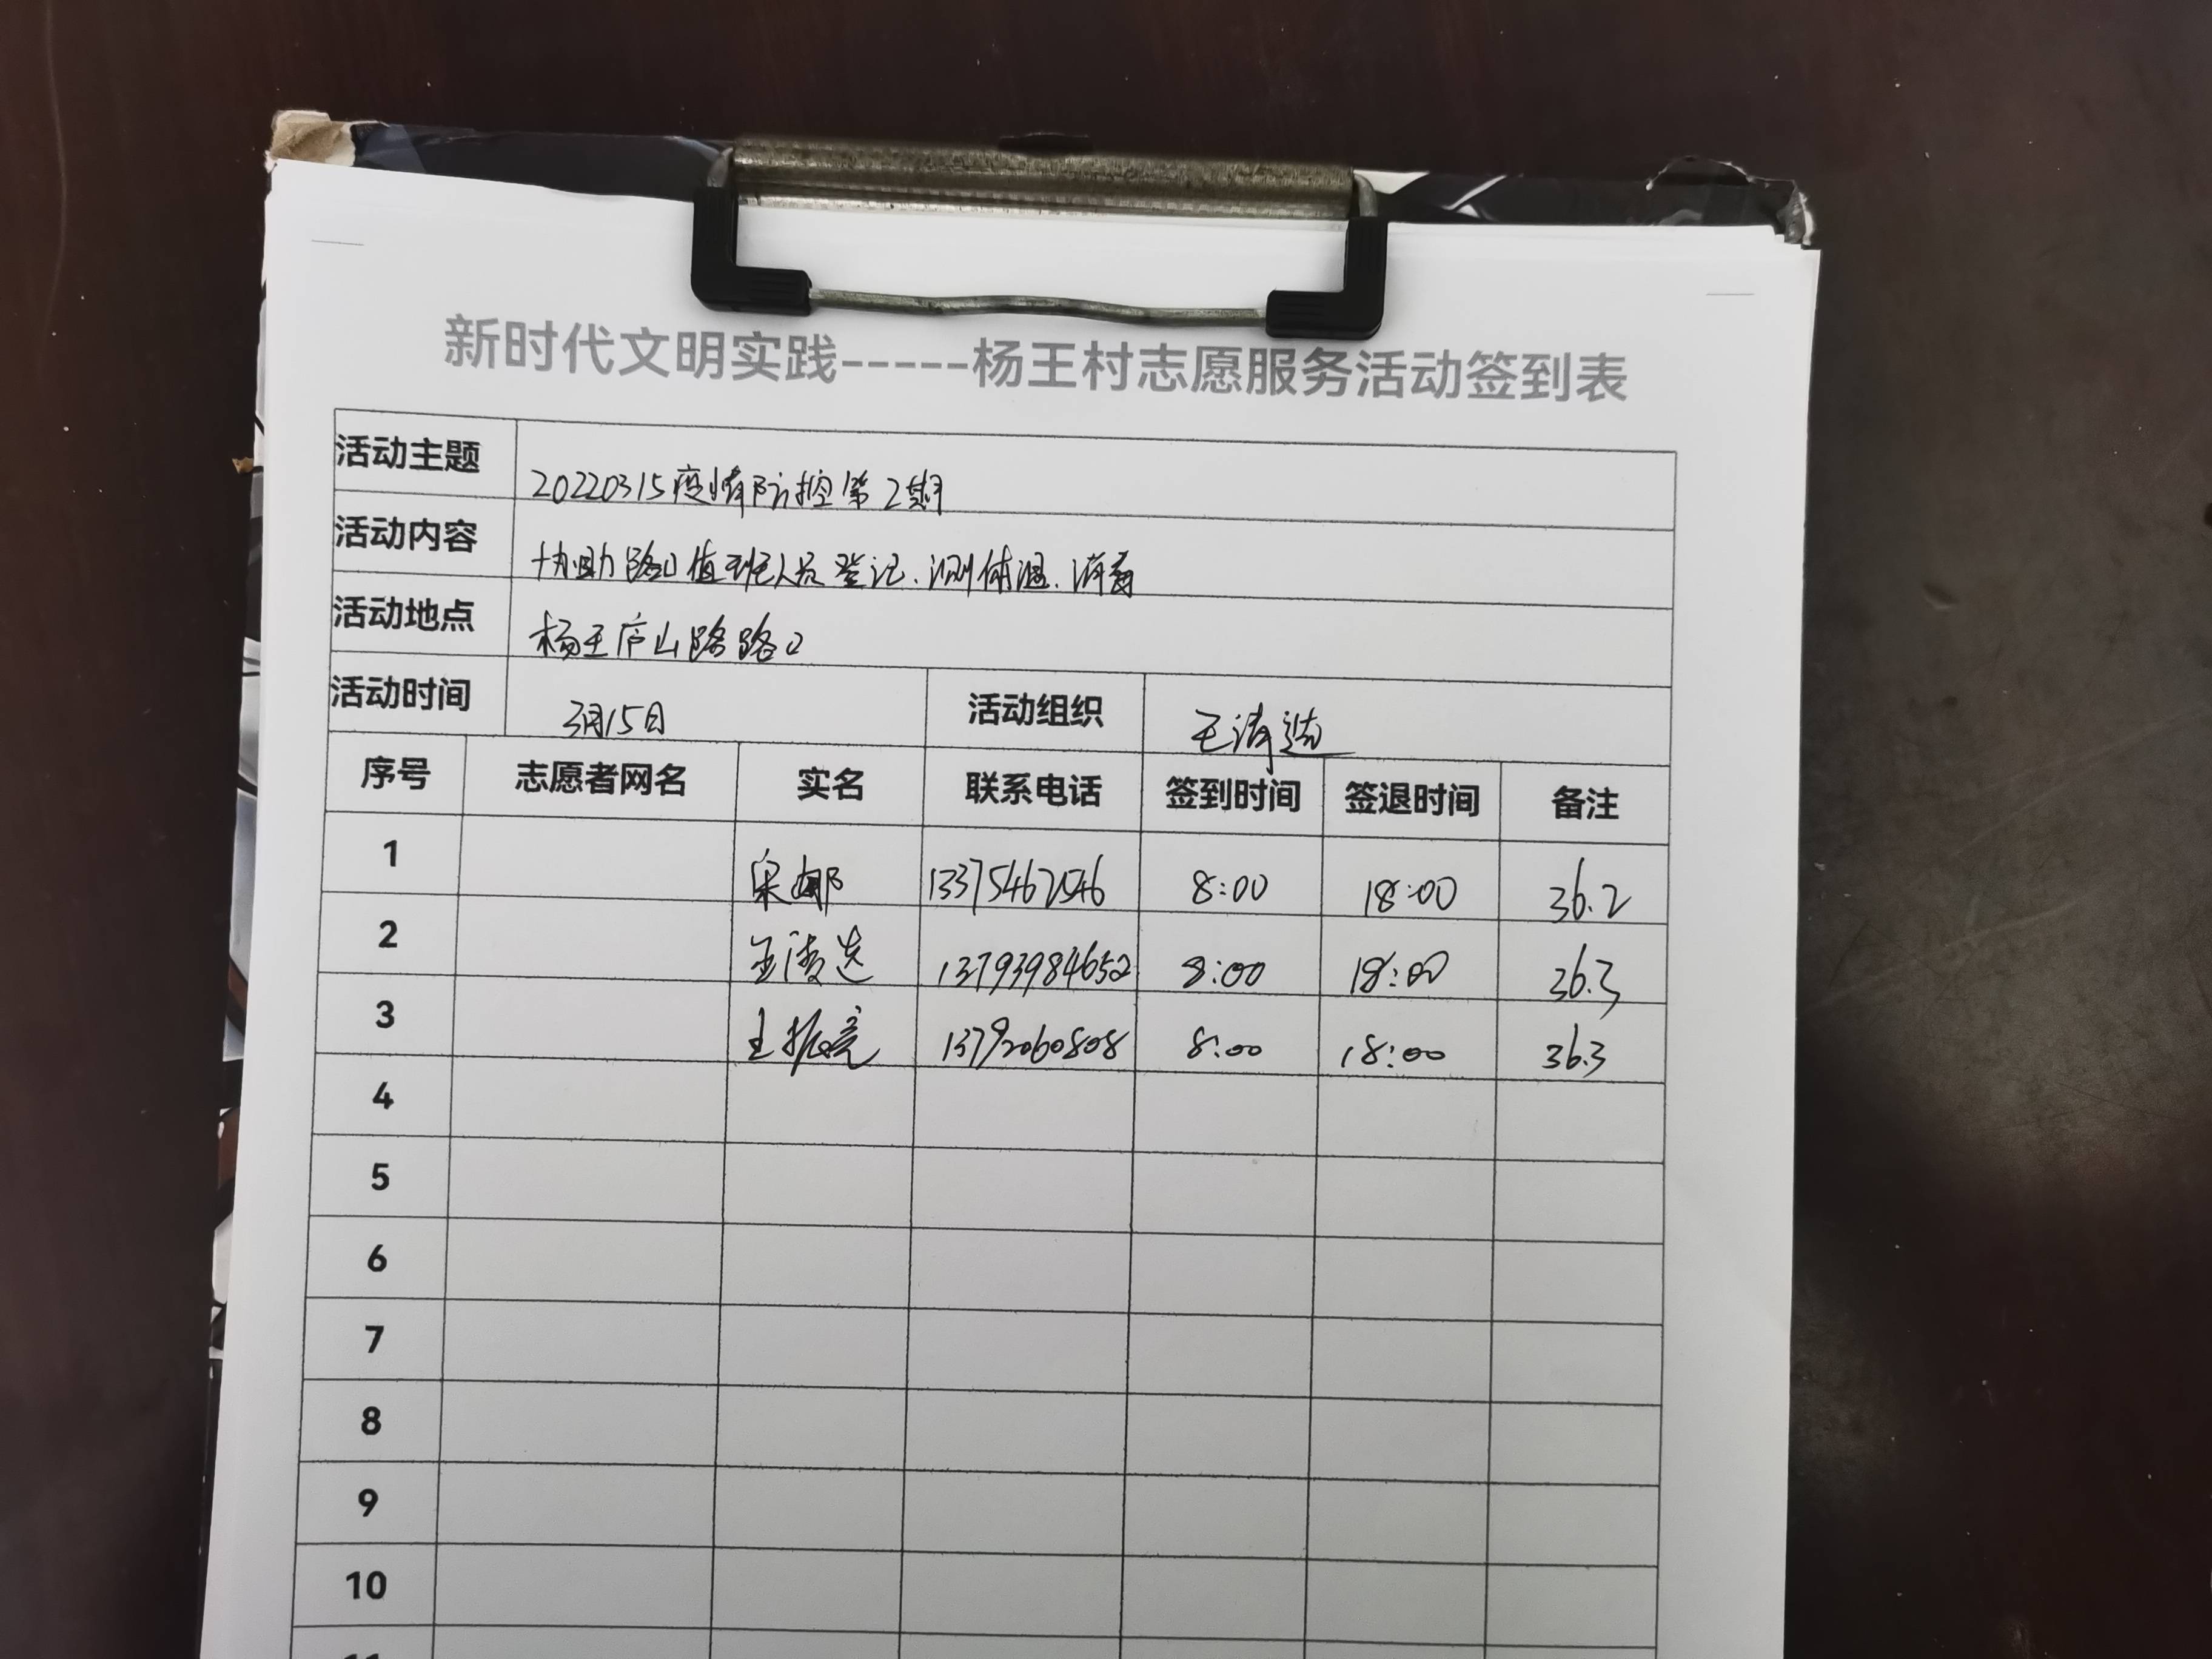 新时代文明实践-----杨王村志愿服务活动签到表
活动主题 20220315疫情防控第2期
活动内容 协助路口值班人员登记.测体温.消毒
活动地点 杨王庐山路路口
活动时间 3月15日 活动组织 王
序号 志愿者网名 实名 联系电话 签到时间 签退时间 备注
1 宋娜 13375467546 8:00 18:00 36.2
2 13793984652 8:00 18:00 36.3
3 王振亮 13792060808 8:00 18:00 36.3
4
5
6
7
8
9
10
11